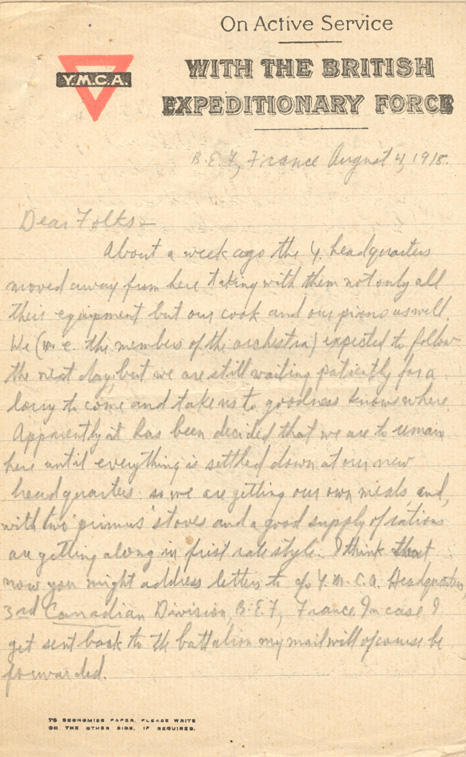 On Active Service
WITH THE BRITISH
EXPEDITIONARY FORCE
Y.M.C.A.
B.E.F., France August 4, 1918.
Dear Folks -
About a week ago the Y. headquarters
moved away from here taking with them not only all
their equipment but our cook and our piano as well.
We (i.e. the members of the orchestra) expected to follow
the next day but we are still waiting patiently for a
lorry to come and take us to goodness knows where
Apparently it has been decided that we are to remain
here until everything is settled down at our new
headquarters. so we are getting our own meals and,
with two 'primus' stoves and a good supply of rations
are getting along in first rate style. I think that
now you might address letters to c/o Y.M.C.A. Headquarters,
3rd Canadian Division, B.E.F., France. In case I
get sent back to the battalion my mail will of course be
forwarded.
TO ECONOMISE PAPER, PLEASE WRITE
ON THE OTHER SIDE, IF REQUIRED.